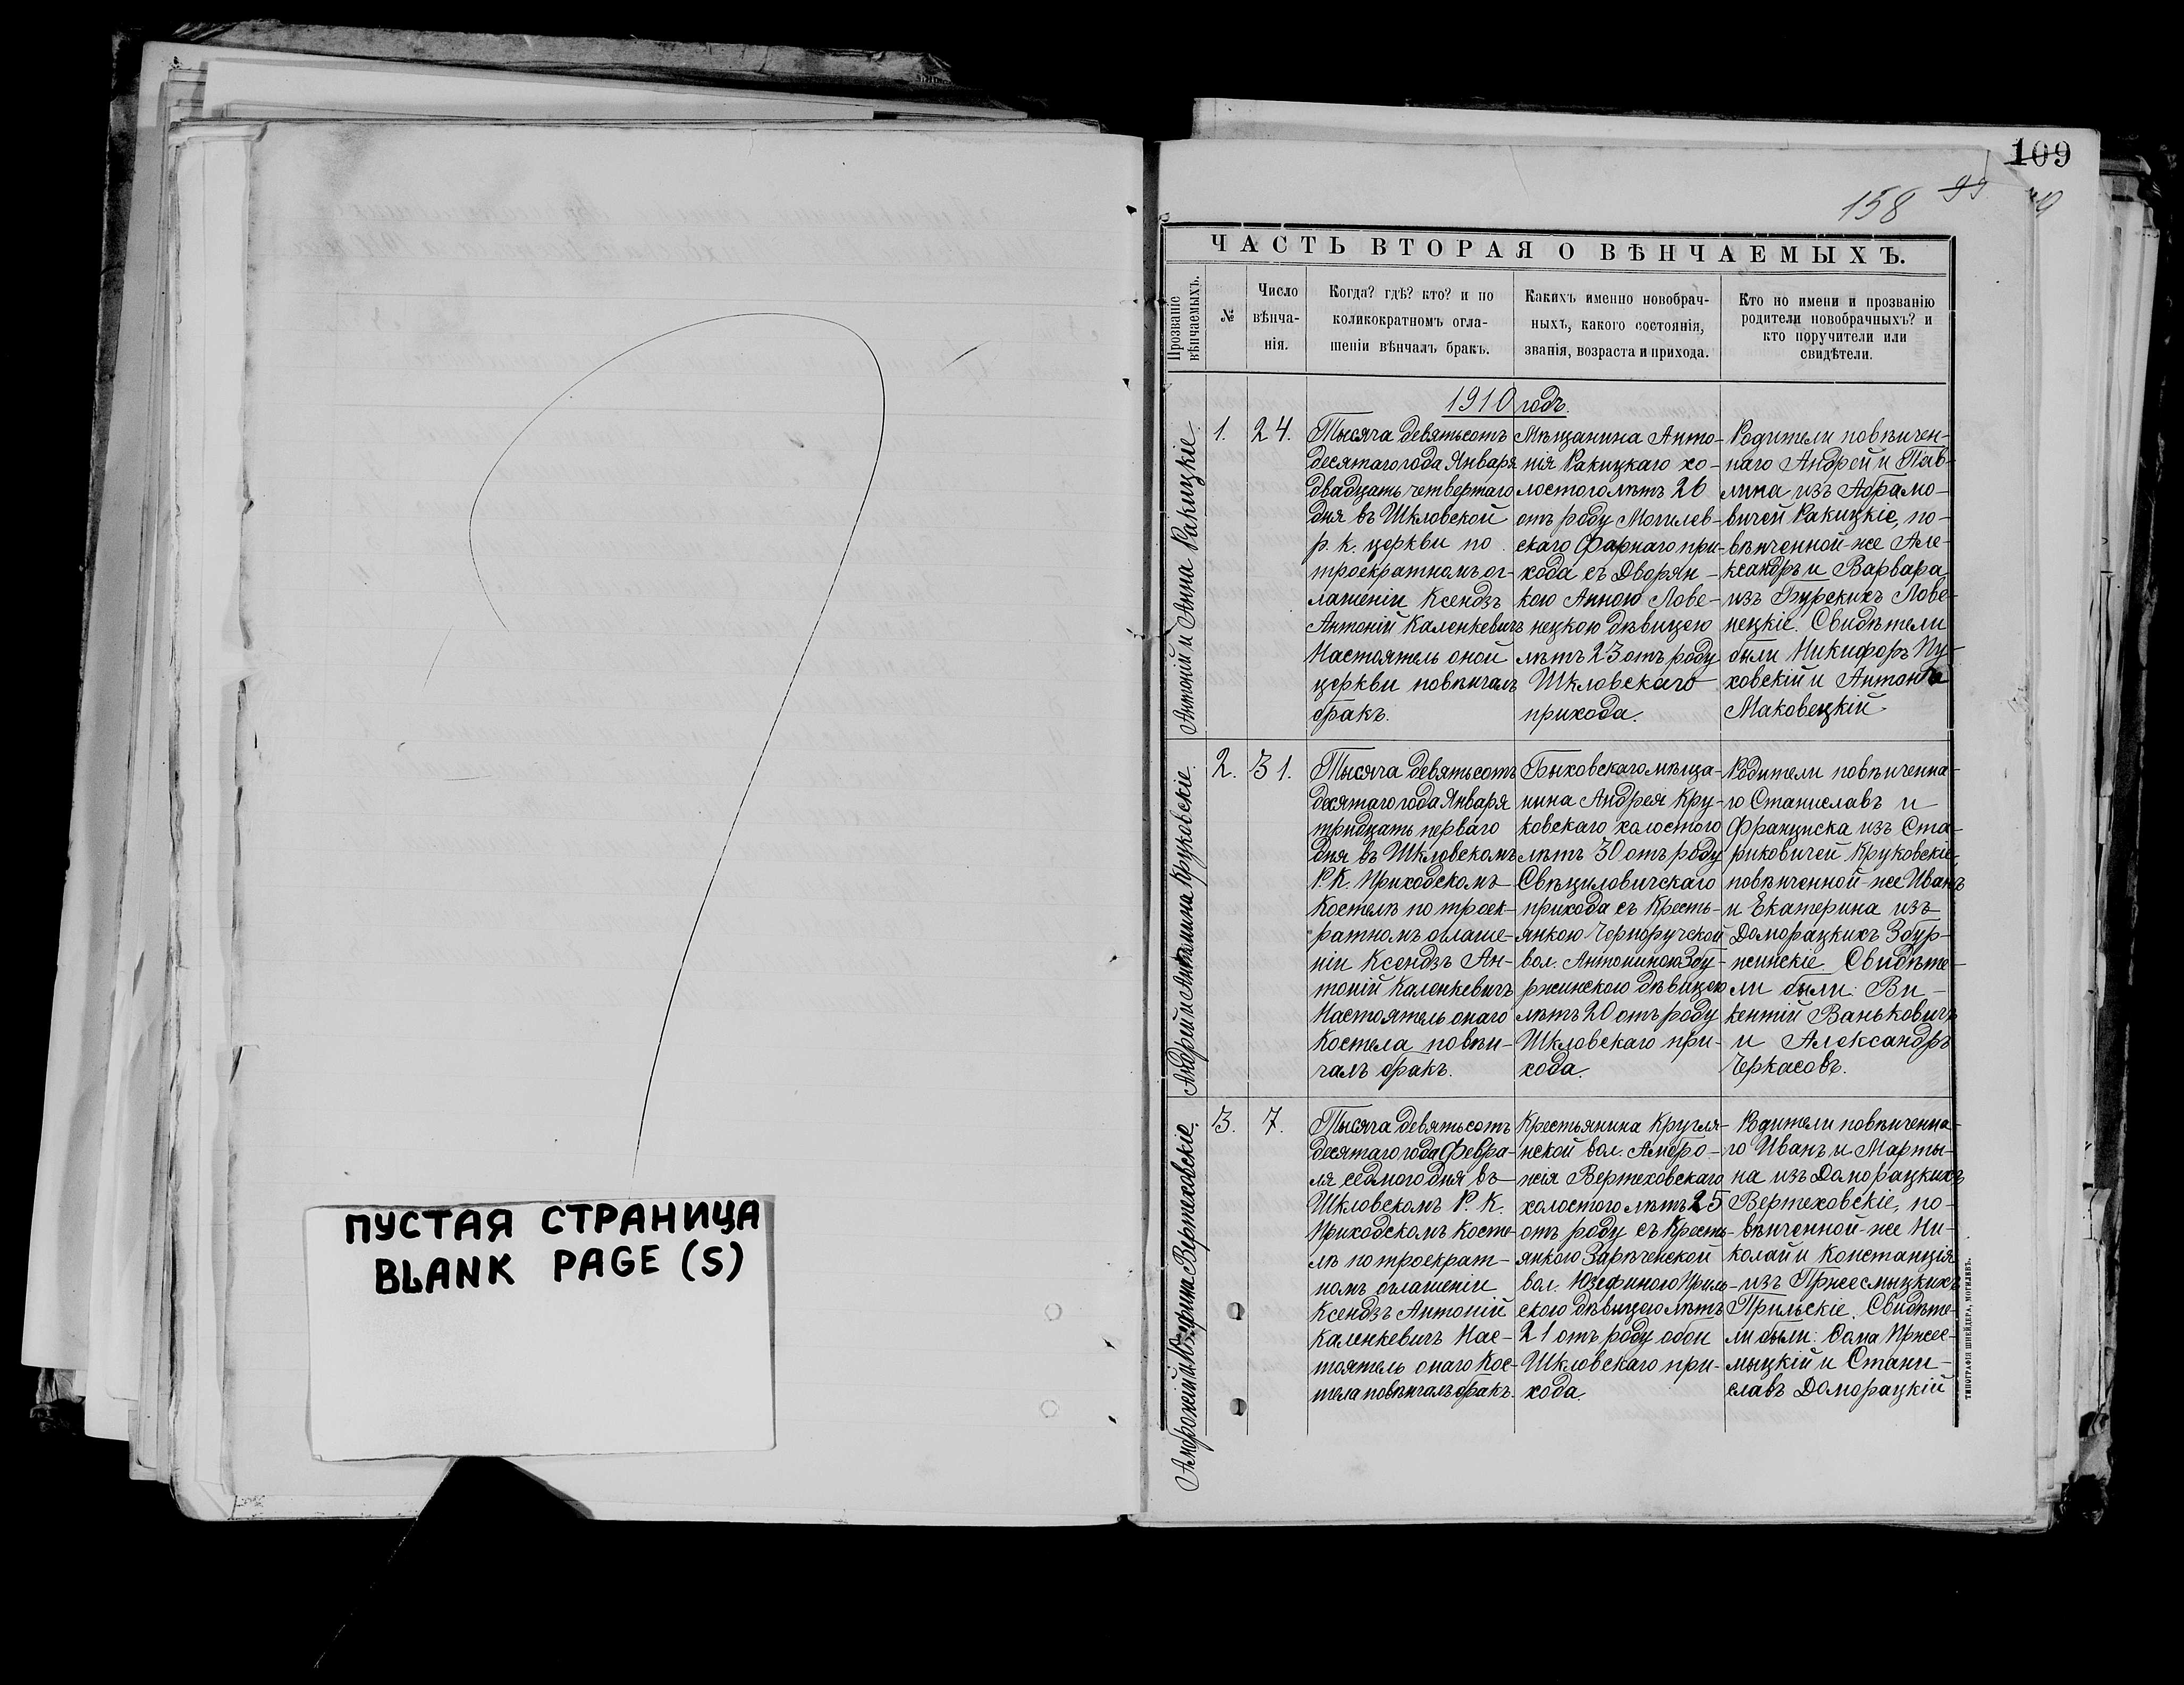 109
158 99
ЧАСТЬ ВТОРАЯ О ВѢНЧАЕМЫХЪ.
Прозваніе вѣнчаемыхъ.
№
Число вѣнча-
нія.
Когда? гдѣ? кто? и по
коликократномъ огла-
шеніи вѣнчалъ бракъ.
Какихъ именно новобрач-
ныхъ, какого состоянія,
званія, возраста и прихода.
Кто по имени и прозванію
родители новобрачныхъ? и
кто поручители или
свидѣтели.
1910 годъ.
Антоній и Анна Ракицкіе.
1.
24.
Тысяча девятьсотъ
десятаго года Января
двадцать четвертаго
дня въ Шкловской
р. к. церкви по
троекратномъ ог-
лашеніи Ксендзъ
Антоній Каленкевичъ
Настоятель оной
церкви повѣнчалъ
бракъ.
Мѣщанина Анто-
нія Ракицкаго хо-
лостого лѣтъ 26
отъ роду Могилев-
скаго Фарнаго при-
хода съ Дворян-
кою Анною Лове-
нецкою дѣвицею
лѣтъ 23 отъ роду
Шкловскаго
прихода.
Родители повѣнчен-
наго Андрей и Пав-
лина изъ Абрамо-
вичей Ракицкіе, по-
вѣнченной-же Але-
ксандръ и Варвара
изъ Бурскихъ Лове-
нецкіе. Свидѣтели
были Никифоръ Пу-
ховскій и Антонъ
Маковецкій.
Андрей и Антонина Круковскіе.
2.
31.
Тысяча девятьсотъ
десятаго года Января
тридцать перваго
дня въ Шкловскомъ
Р. К. Приходскомъ
Костелѣ по троек-
ратномъ оглаше-
ніи Ксендзъ Ан-
тоній Каленкевичъ
Настоятель онаго
Костела повѣн-
чалъ бракъ.
Быховскаго мѣща-
нина Андрея Кру-
ковскаго холостого
лѣтъ 30 отъ роду
Свѣциловичскаго
прихода съ Кресть-
янкою Черноручской
вол. Антониною Збу-
ржинскою дѣвицею
лѣтъ 20 отъ роду
Шкловскаго при-
хода.
Родители повѣнченна-
го Станиславъ и
Франциска изъ Ста-
риковичей Круковскіе,
повѣнченной-же Иванъ
и Екатерина изъ
Доморацкихъ Збур-
жинскіе. Свидѣте-
ли были: Ви-
кентій Ваньковичъ
и Александръ
Черкасовъ.
Амброжій и Юзефина Вертеховскіе.
3.
7.
Тысяча девятьсотъ
десятаго года Февра-
ля седмого дня въ
Шкловскомъ Р. К.
Приходскомъ Косте-
лѣ по троекрат-
номъ оглашеніи
Ксендзъ Антоній
Каленкевичъ Нас-
тоятель онаго Кос-
тела повѣнчалъ бракъ.
Крестьянина Кругля-
нской вол. Амбро-
жія Вертеховскаго
холостого лѣтъ 25
отъ роду съ Кресть-
янкою Зарѣченской
вол. ЮзефиноюПриль-
скою дѣвицею лѣтъ
21 отъ роду обои
Шкловскаго при-
хода.
Родители повѣнченна-
го Иванъ и Марты-
на изъ Доморацкихъ
Вертеховскіе, по-
вѣнченной-же Ни-
колай и Констанція
изъ Пржесмыцкихъ
Прильскіе. Свидѣте-
ли были: Ѳома Пржес-
мыцкій и Стани-
славъ Доморацкій
ТИПОГРАФІЯ ШНЕЙДЕРА, МОГИЛЕВЪ.
ПУСТАЯ СТРАНИЦА
BLANK PAGE (S)